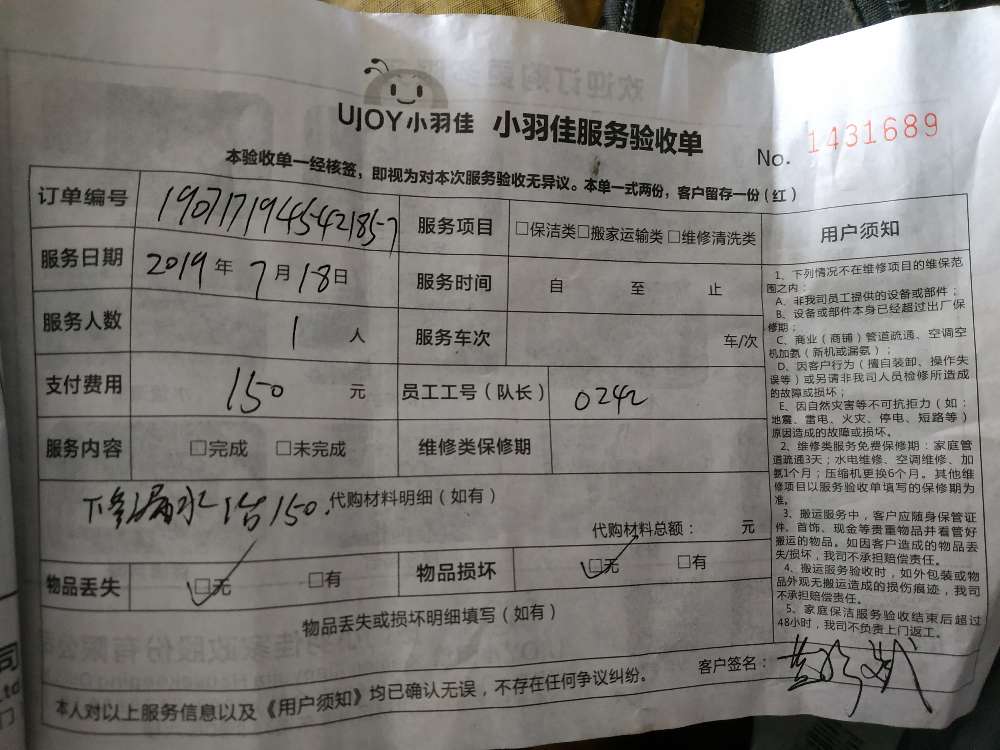 UJOY小羽佳 小羽佳服务验收单
No. 1431689
本验收单一经核签，即视为对本次服务验收无异议。本单一式两份，客户留存一份(红)
订单编号 190717194542185-7 服务项目 □保洁类□搬家运输类 □维修清洗类
服务日期 2019年 7月18日 服务时间 自 至 止
服务人数 1 人 服务车次 车/次
支付费用 150 元 员工工号（队长） 0242
服务内容 □完成 □未完成 维修类保修期
漏水1台150. 代购材料明细（如有）
代购材料总额： 元
物品丢失 □无 □有 物品损坏 □无 □有
物品丢失或损坏明细填写（如有）
本人对以上服务信息以及《用户须知》均已确认无误，不存在任何争议纠纷。
客户签名：
用户须知
1、下列情况不在维修项目的维保范
围之内：
A、非我司员工提供的设备或部件；
B、设备或部件本身已经超过出厂保
修期；
C、商业（商铺）管道疏通、空调空
机加氨（新机或漏氨）；
D、因客户行为（擅自装卸、操作失
误等）或另请非我司人员检修所造成
的故障或损坏；
E、因自然灾害等不可抗拒力（如：
地震、雷电、火灾、停电、短路等）
原因造成的故障或损坏。
2、维修类服务免费保修期：家庭管
道疏通3天；水电维修、空调维修、加
氨1个月；压缩机更换6个月。其他维
修项目以服务验收单填写的保修期为
准。
3、搬运服务中，客户应随身保管证
件、首饰、现金等贵重物品并看管好
搬运的物品。如因客户造成的物品丢
失/损坏，我司不承担赔偿责任。
4、搬运服务验收时，如外包装或物
品外观无搬运造成的损伤痕迹，我司
不承担赔偿责任。
5、家庭保洁服务验收结束后超过
48小时，我司不负责上门返工。